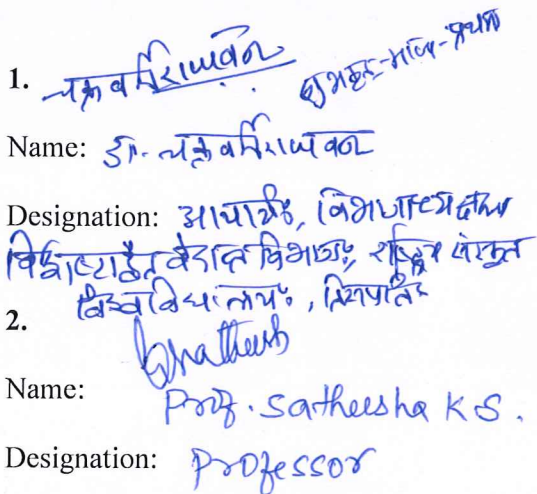 1. चक्रवर्तिराघवन्
Name: डा. चक्रवर्तिराघवन्
Designation: आचार्यः, विभागाध्यक्षः
विशिष्टाद्वैत वेदान्त विभागः, राष्ट्रिय संस्कृत
विश्वविद्यालयः, तिरुपतिः
2.
Name: Prof. Satheesha K S.
Designation: Professor